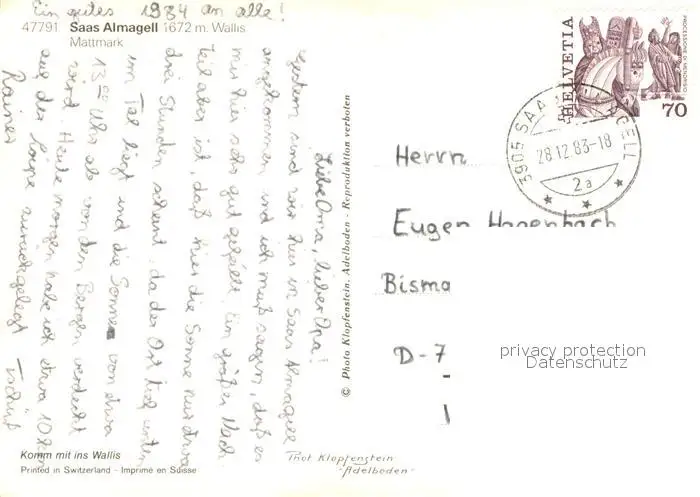 Ein gutes 1984 an alle!
47791 Saas Almagell 1672 m. Wallis
Mattmark
Liebe Oma, lieber Opa!
Gestern sind wir hier in Saas Almagell
angekommen und ich muß sagen, daß es
mir hier sehr gut gefällt. Ein großer Nach-
teil aber ist, daß hier die Sonne nur etwa
drei Stunden scheint, da der Ort tief unten
im Tal liegt und die Sonne von etwa
13 00 Uhr ab von den Bergen verdeckt
wird. Heute morgen habe ich etwa 10 km
auf der Loipe zurückgelegt. Tschüß
Rainer
© Photo Klopfenstein, Adelboden - Reproduktion verboten
HELVETIA
70
3905 SAAS ALMAGELL
28.12.83-18
2a
Herrn
Eugen Hagenbach
Bisma
D-7
privacy protection
Datenschutz
Komm mit ins Wallis
Printed in Switzerland - Imprimé en Suisse
Phot Klopfenstein
"Adelboden"